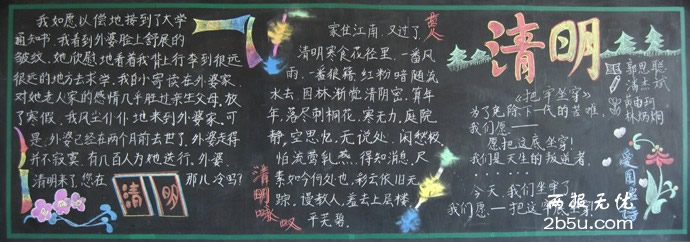 我如愿以偿地接到了大学
通知书,我看到外婆脸上舒展的
皱纹,她欣慰地看着我背上行李到很远
很远的地方去求学,我自小寄读在外婆家,
对她老人家的感情几乎胜过亲生父母,放
了寒假,我风尘仆仆地来到外婆家,可
是,外婆已经在两个月前去世了,外婆走得
并不寂寞,有几百人为她送行,外婆,
清明来了,您在那儿冷吗?
清明
家住江南,又过了
清明寒食花径里,一番风
雨,一番狼籍,红粉暗随流
水去,园林渐觉清阴密,算年
年,落尽刺桐花,寒无力,庭院
静,空思忆,无说处,闲愁极,
怕流莺乳燕,得知消息,尺
素如今何处也,彩云依旧无
踪,慢教人,羞去上层楼,
平芜碧
清明
清明
《把牢坐穿》
为了免除下一代的苦难,
我们愿——
愿把这底坐穿!
我们是天生的叛逆者,
......
今天,我们坐牢了,
我们愿——把这牢底坐穿!
郭思聪
林炳炯
两报无优
2b5u.com